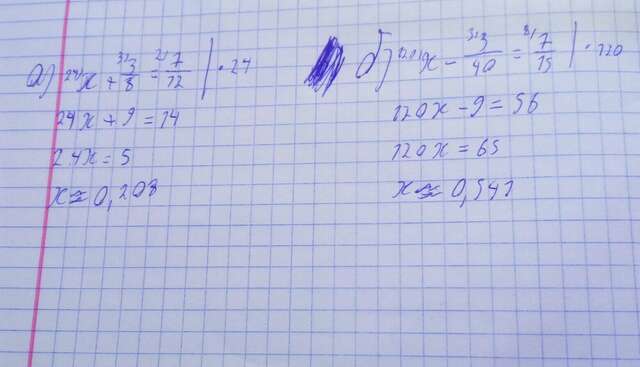 а) ²⁴⁾x + ³⁾3/8 = ²⁾7/12 | · 24
24x + 9 = 14
24x = 5
x ≈ 0,208
б) ¹²⁰⁾x - ³⁾3/40 = ⁸⁾7/15 | · 120
120x - 9 = 56
120x = 65
x ≈ 0,541